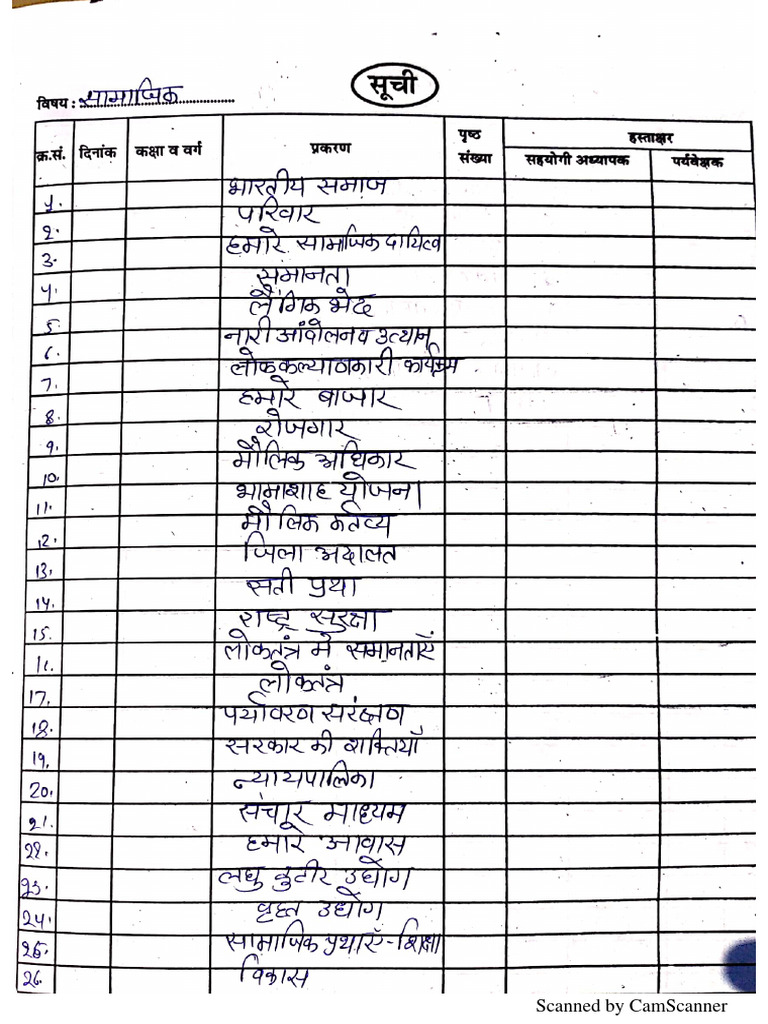 सूची
विषय : सामाजिक
क्र.सं. दिनांक कक्षा व वर्ग प्रकरण पृष्ठ संख्या हस्ताक्षर
सहयोगी अध्यापक पर्यवेक्षक
1. भारतीय समाज
2. परिवार
3. हमारे सामाजिक दायित्व
4. समानता
5. लैंगिक भेद
6. नारी आंदोलन व उत्थान
7. लोककल्याणकारी कार्यक्रम
8. हमारे बाजार
9. रोजगार
10. मौलिक अधिकार
11. भामाशाह योजना
12. मौलिक कर्तव्य
13. जिला अदालत
14. सती प्रथा
15. राष्ट्र सुरक्षा
16. लोकतंत्र में समानताएँ
17. लोकतंत्र
18. पर्यावरण सरंक्षण
19. सरकार की शक्तियाँ
20. न्यायपालिका
21. संचार माध्यम
22. हमारे आवास
23. लघु कुटीर उद्योग
24. वृहत उद्योग
25. सामाजिक प्रथाएँ-शिक्षा
26. विकास
Scanned by CamScanner